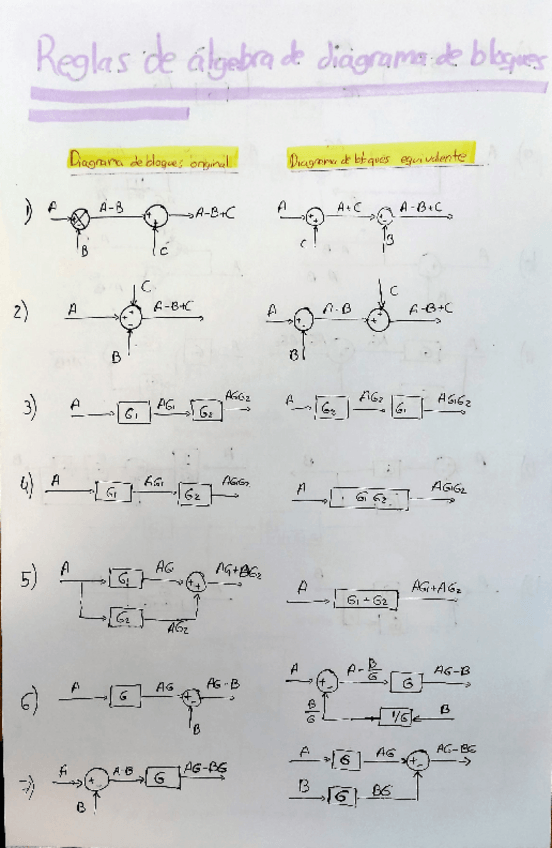 Reglas de álgebra de diagrama de bloques
Diagrama de bloques original
Diagrama de bloques equivalente
1) A A-B A-B+C B C
A A+C A-B+C C B
2) A C A-B+C B
A A-B C A-B+C B
3) A G1 AG1 G2 AG1G2
A G2 AG2 G1 AG1G2
4) A G1 AG1 G2 AG1G2
A G1 G2 AG1G2
5) A G1 AG AG1+BG2 G2 AG2
A G1+G2 AG1+AG2
6) A G AG AG-B B
A A-B/G G AG-B B/G 1/G B
7) A A-B G AG-BG B
A G AG AG-BG
B G BG